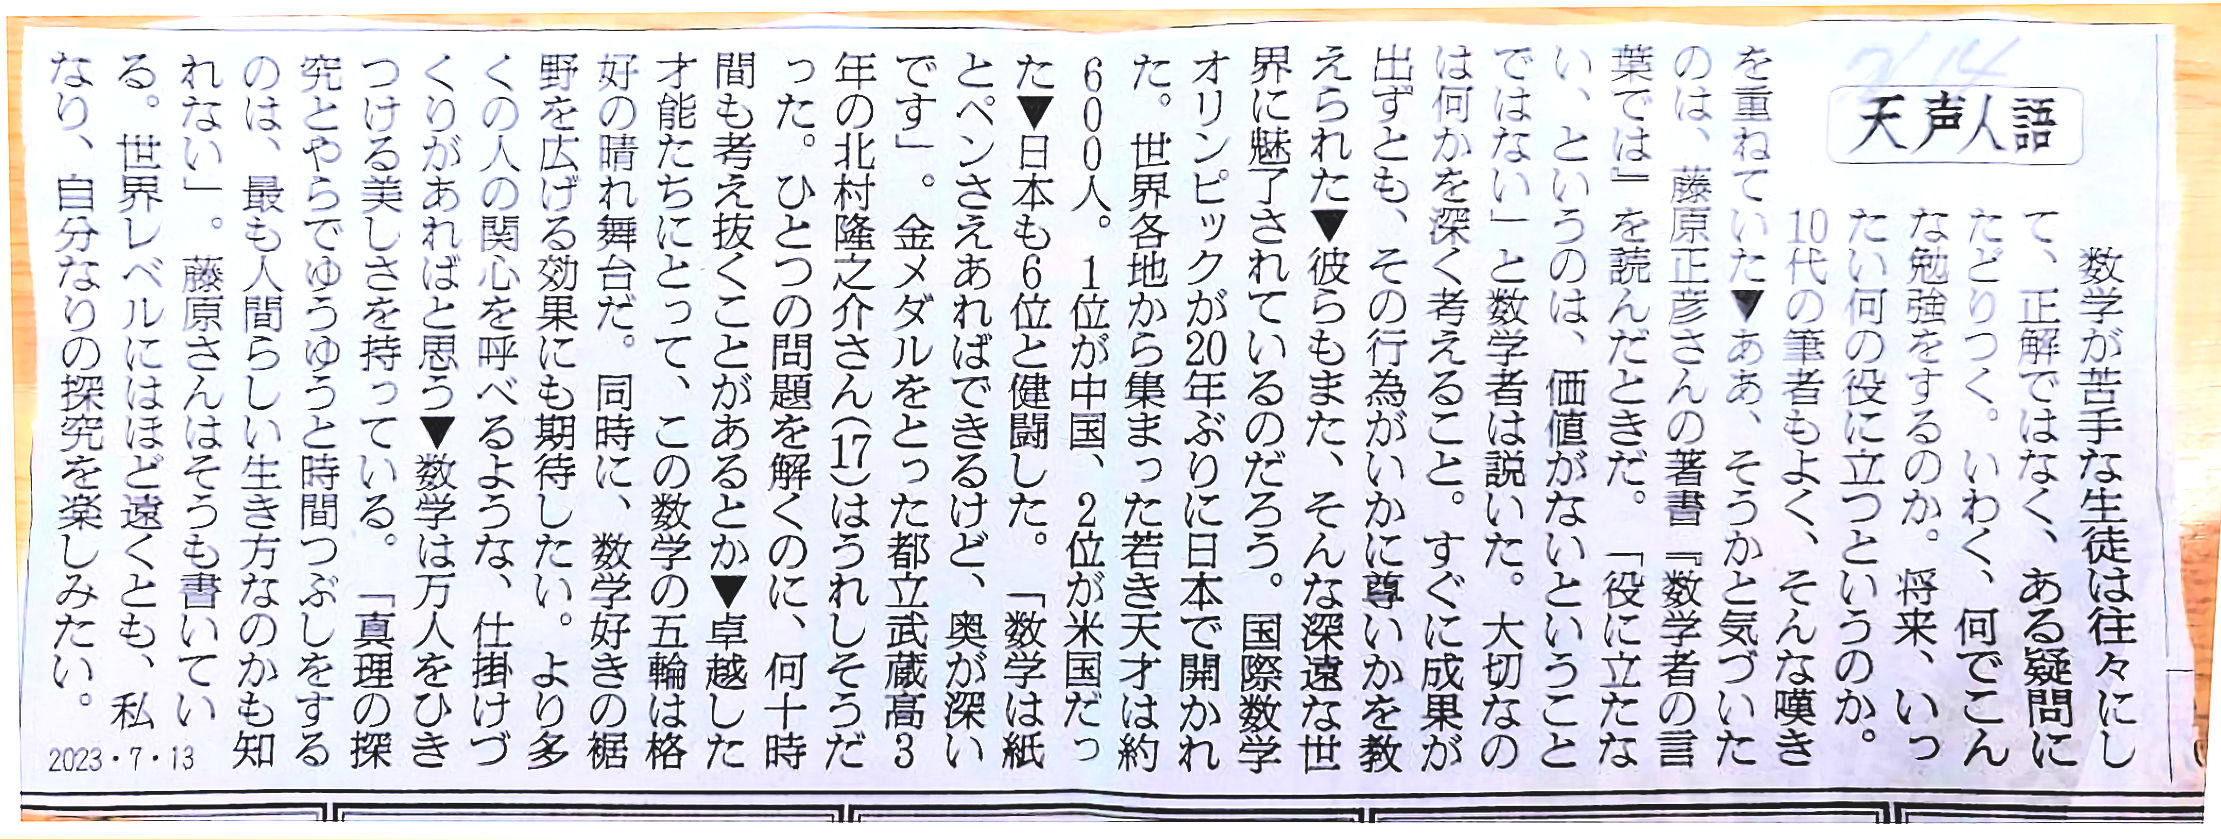 天声人語
数学が苦手な生徒は往々にし
て、正解ではなく、ある疑問に
たどりつく。いわく、何でこん
な勉強をするのか。将来、いっ
たい何の役に立つというのか。
10代の筆者もよく、そんな嘆き
を重ねていた▼ああ、そうかと気づいた
のは、藤原正彦さんの著書『数学者の言
葉では』を読んだときだ。「役に立たな
い、というのは、価値がないということ
ではない」と数学者は説いた。大切なの
は何かを深く考えること。すぐに成果が
出ずとも、その行為がいかに尊いかを教
えられた▼彼らもまた、そんな深遠な世
界に魅了されているのだろう。国際数学
オリンピックが20年ぶりに日本で開かれ
た。世界各地から集まった若き天才は約
600人。1位が中国、2位が米国だっ
た▼日本も6位と健闘した。「数学は紙
とペンさえあればできるけど、奥が深い
です」。金メダルをとった都立武蔵高3
年の北村隆之介さん(17)はうれしそうだ
った。ひとつの問題を解くのに、何十時
間も考え抜くことがあるとか▼卓越した
才能たちにとって、この数学の五輪は格
好の晴れ舞台だ。同時に、数学好きの裾
野を広げる効果にも期待したい。より多
くの人の関心を呼べるような、仕掛けづ
くりがあればと思う▼数学は万人をひき
つける美しさを持っている。「真理の探
究とやらでゆうゆうと時間つぶしをする
のは、最も人間らしい生き方なのかも知
れない」。藤原さんはそうも書いてい
る。世界レベルにはほど遠くとも、私
なり、自分なりの探究を楽しみたい。
2023・7・13